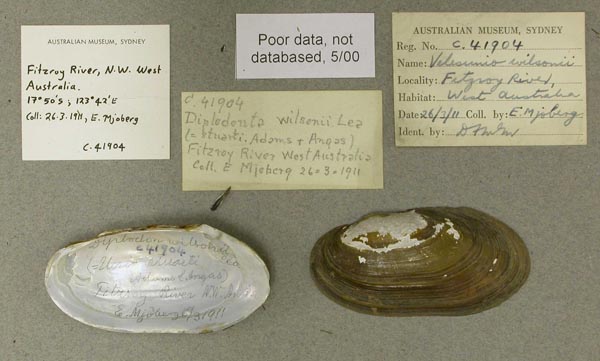 AUSTRALIAN MUSEUM, SYDNEY
Fitzroy River, N.W. West
Australia.
17°50'S ; 123°42'E
Coll: 26.3.1911, E. Mjoberg
C.41904
Poor data, not
databased, 5/00
C.41904
Diplodonta wilsonii Lea
(= stuarti. Adams & Angas)
Fitzroy River West Australia
Coll. E Mjoberg 26-3-1911
AUSTRALIAN MUSEUM, SYDNEY
Reg. No. C.41904
Name: Velesunio wilsonii
Locality: Fitzroy River,
Habitat: West Australia
Date: 26/3/11 Coll. by: E. Mjoberg.
Ident. by:
C41904
Adams & Angas)
Fitzroy River N.W.
E. Mjoberg 26/3/1911